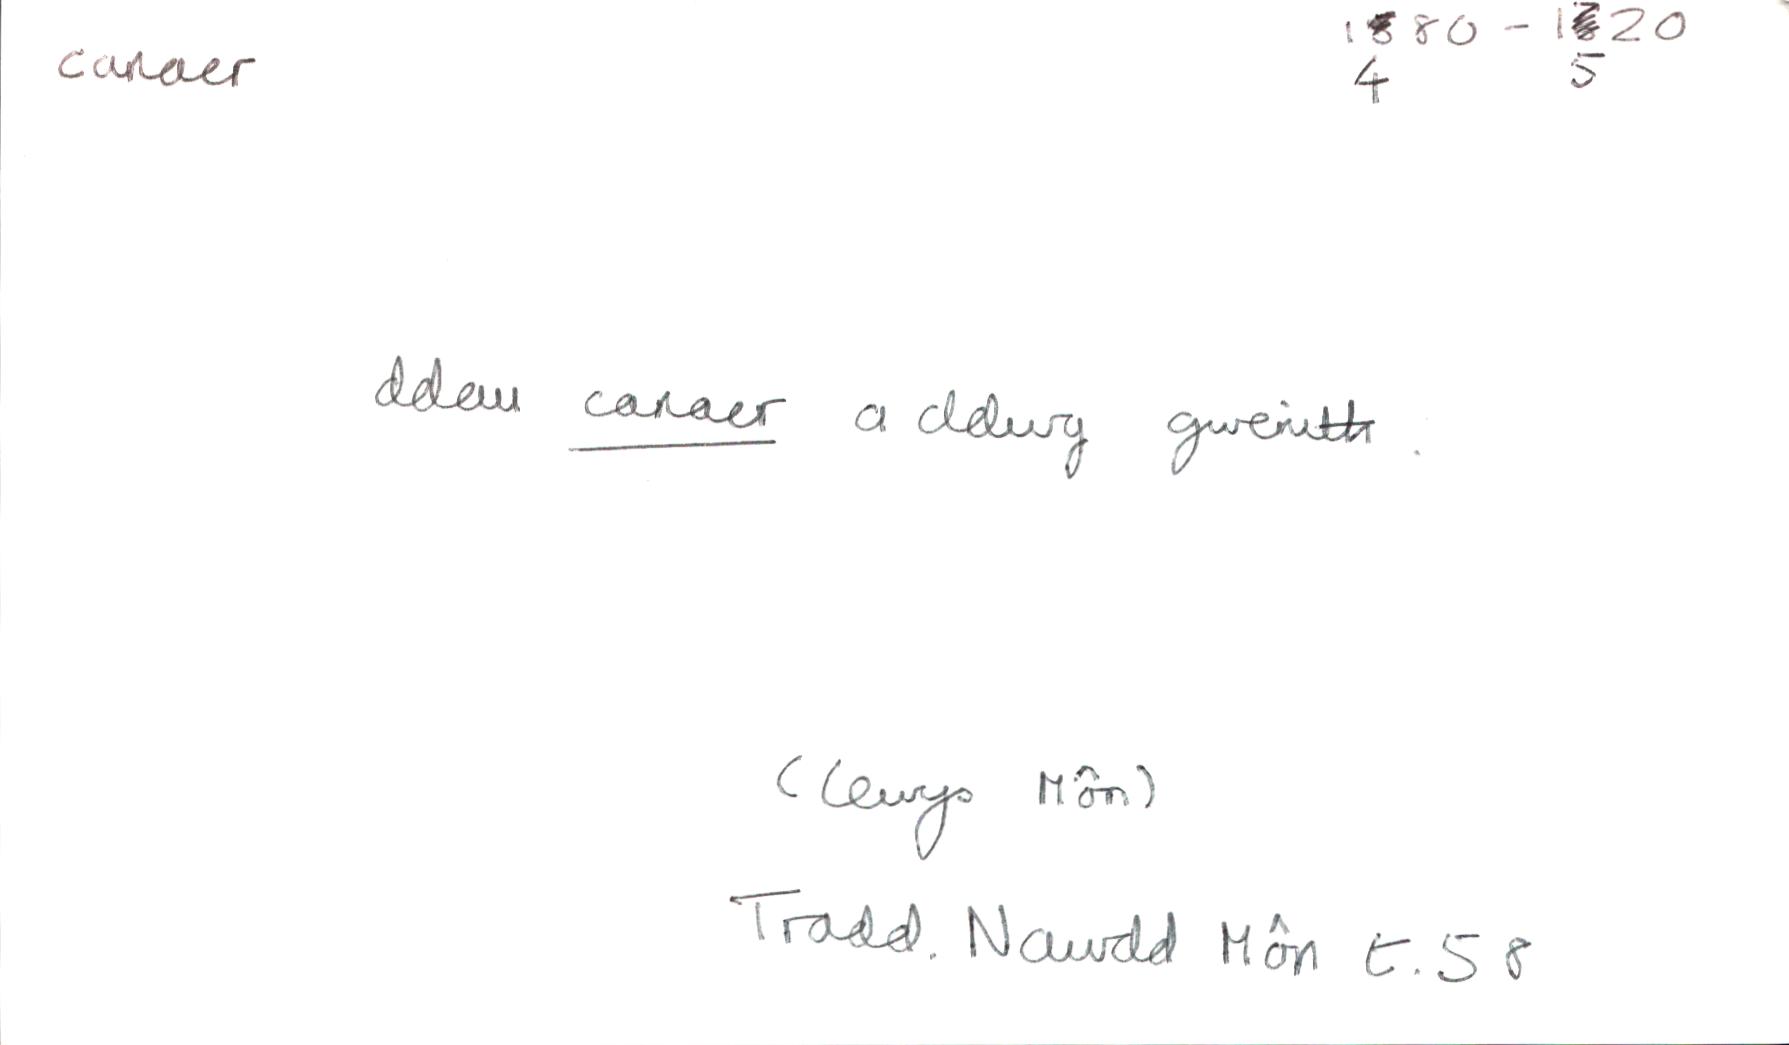 canaer
1480 - 1520
ddau canaer a ddwg gwenith.
(Lewys Môn)
Tradd. Nawdd Môn t.58